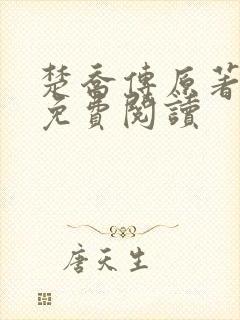 楚喬傳原著
免費閱讀
唐天生